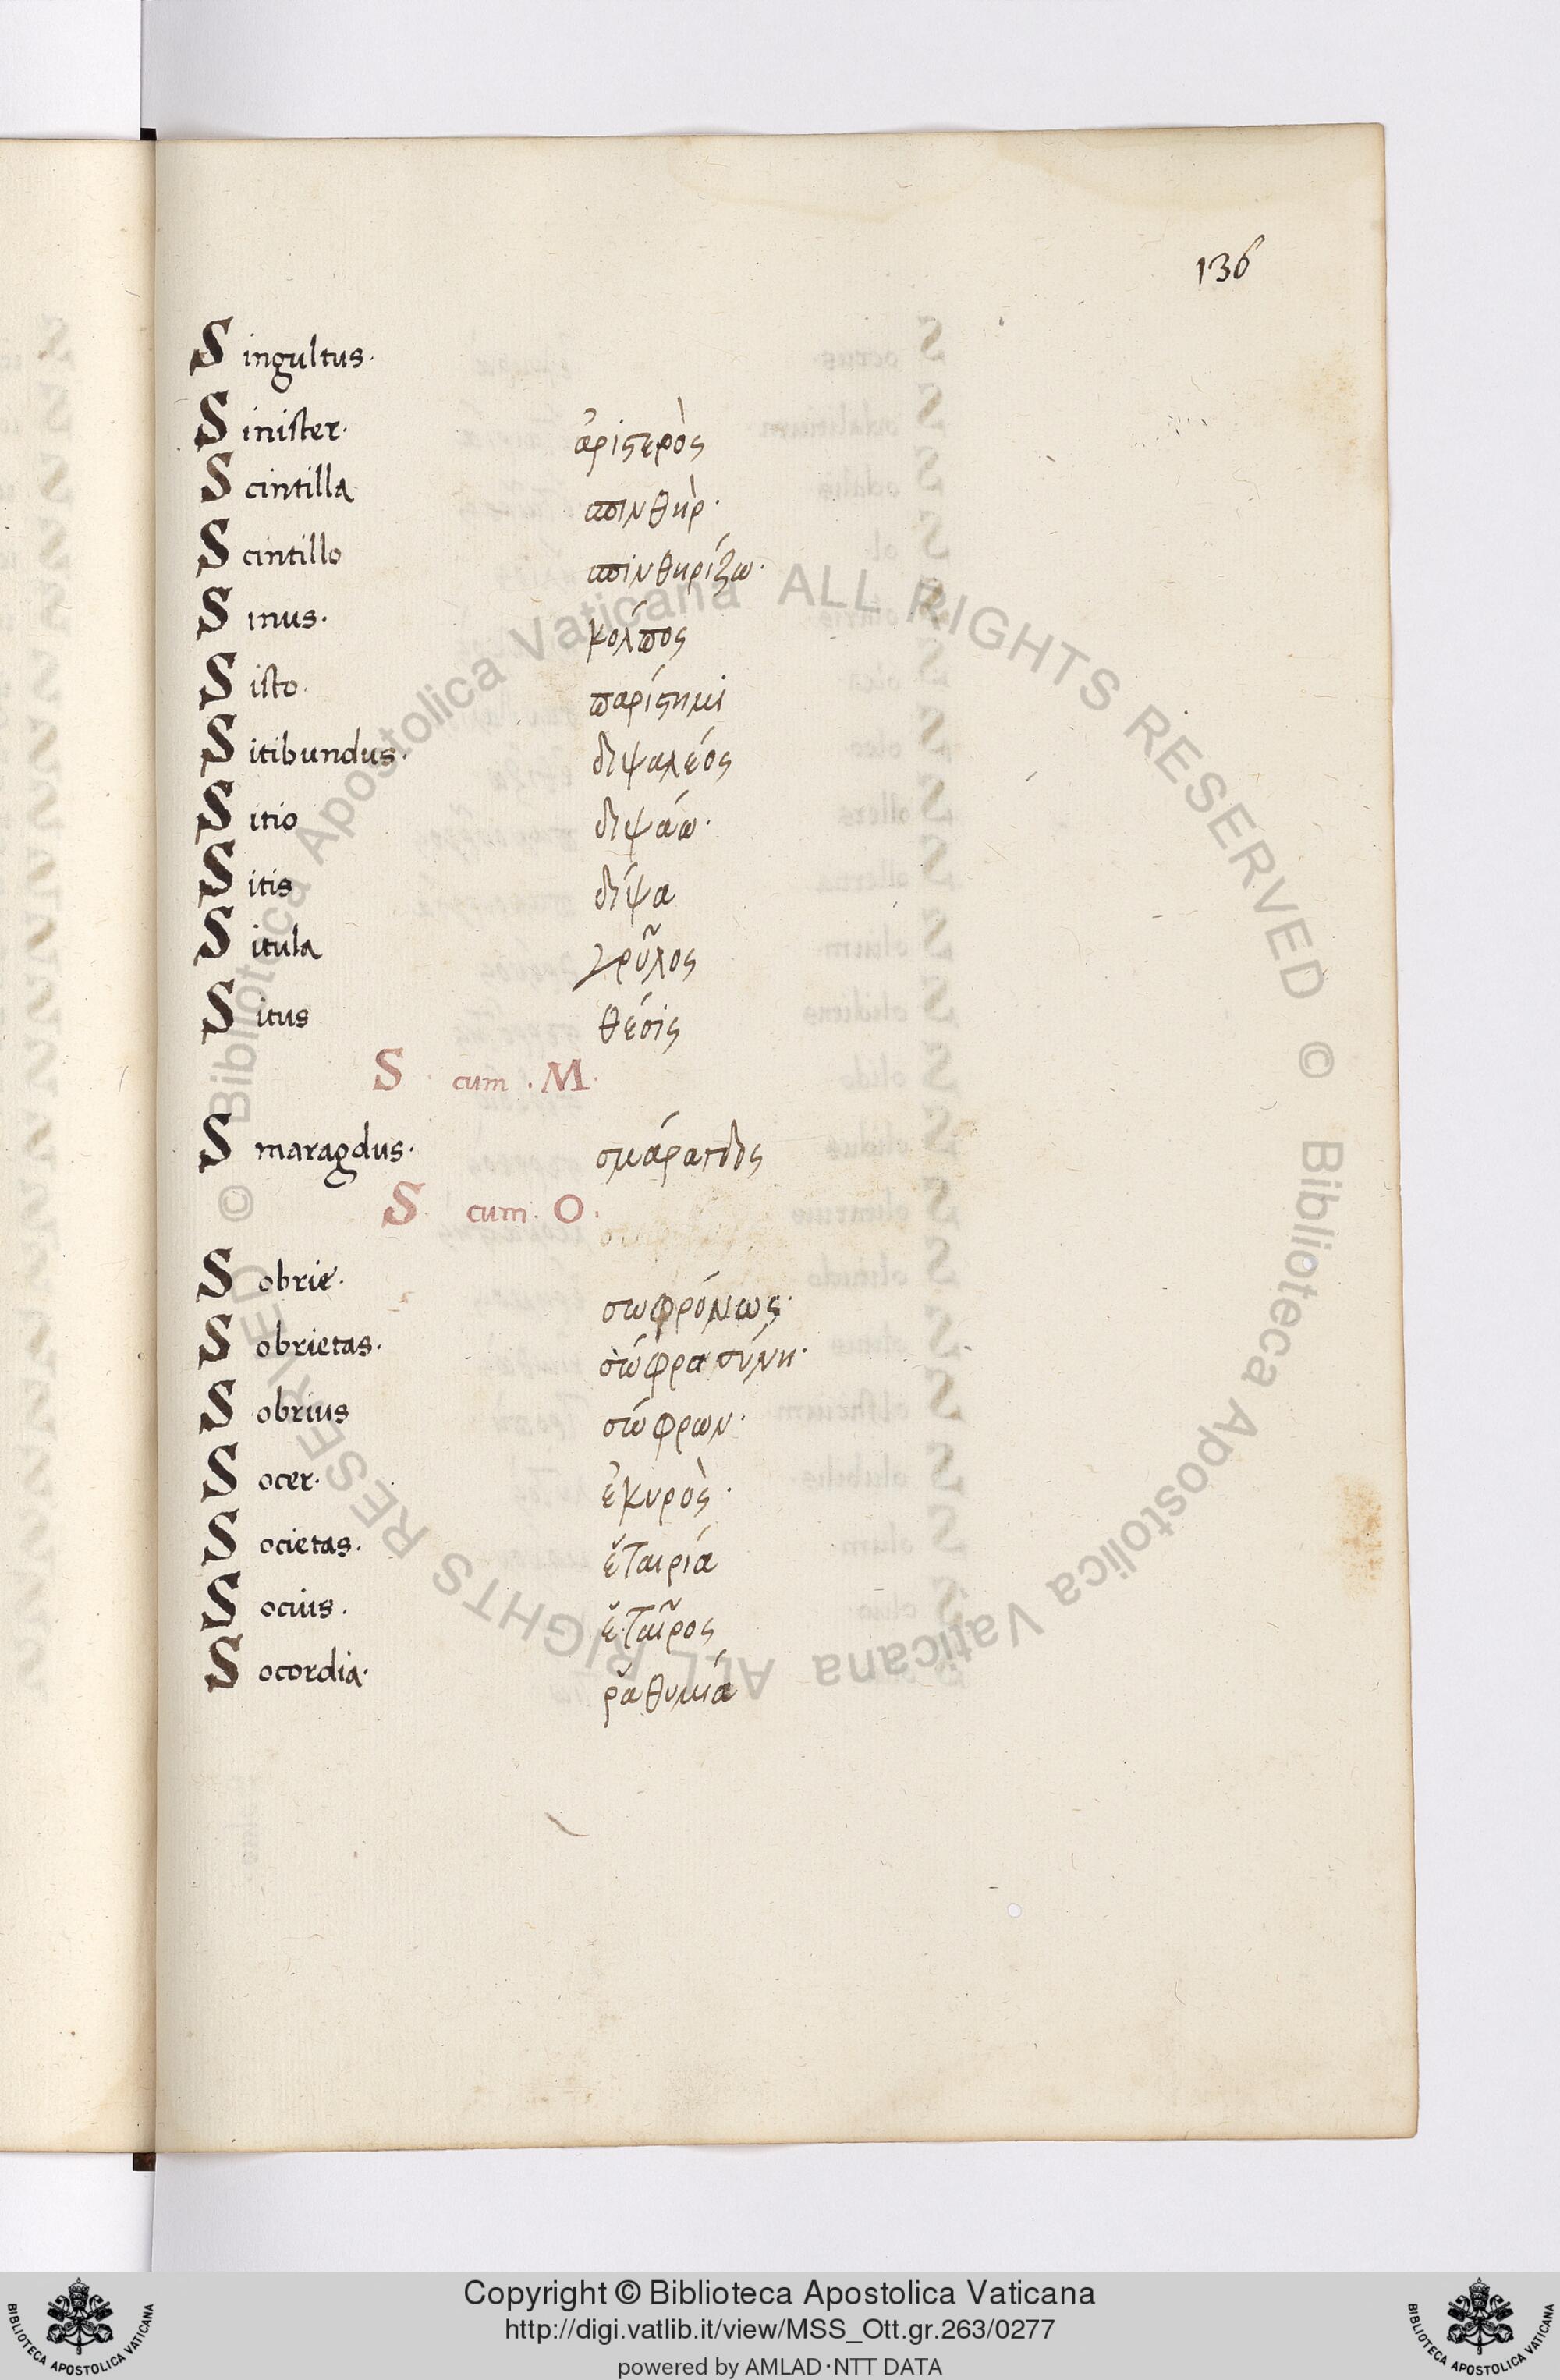 136
Singultus.
Sinister. ἀριστερὸς
Scintilla σπινθὴρ.
Scintillo σπινθηρίζω.
Sinus. κόλπος
Sisto. παρίστημι
Sitibundus. διψαλέος
Sitio διψάω.
Sitis δίψα
Situla γρῦλος
Situs θέσις
S cum . M.
Smaragdus. σμάραγδος
S cum. O.
Sobrie. σωφρόνως.
Sobrietas. σώφρασύνη.
Sobrius σώφρων.
Socer. ἑκυρὸς.
Societas. ἑταιρία
Socius. ἑταῖρος
Socordia. ῥαθυμία
© Biblioteca Apostolica Vaticana ALL RIGHTS RESERVED
© Biblioteca Apostolica Vaticana ALL RIGHTS RESERVED
Copyright © Biblioteca Apostolica Vaticana
http://digi.vatlib.it/view/MSS_Ott.gr.263/0277
powered by AMLAD·NTT DATA
BIBLIOTECA APOSTOLICA VATICANA
BIBLIOTECA APOSTOLICA VATICANA